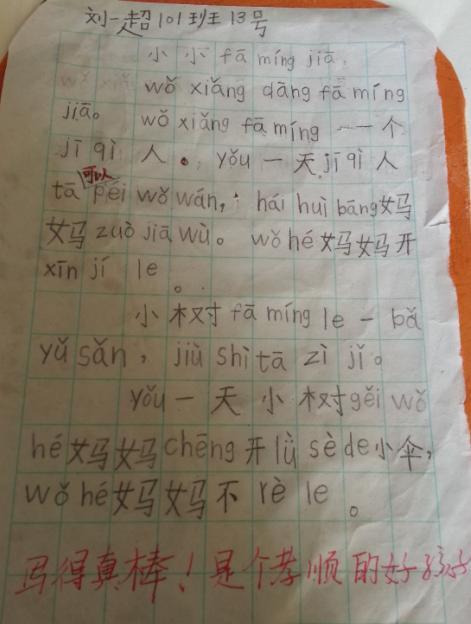 刘一超101班13号
小小fā míng jiā
wǒ xiǎng dāng fā míng
jiā。 wǒ xiǎng fā míng 一个
jī qì 人。yǒu 一天jī qì人
可以
tā péi wǒ wán，hái huì bāng妈
妈zuò jiā wù。wǒ hé妈妈开
xīn jí le。
小树fā míng le 一 bǎ
yǔ sǎn，jiù shì tā zì jǐ。
yǒu 一天小树gěi wǒ
hé妈妈chēng开lǜ sè de小伞，
wǒ hé妈妈不rè le。
写得真棒！是个孝顺的好孩子